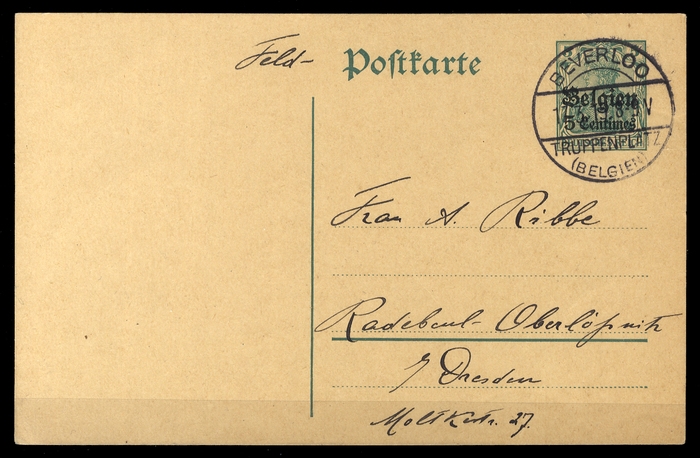 Feld- Postkarte
BEVERLOO
Belgien
5 Centimes
TRUPPENPLATZ
(BELGIEN)
Frau A. Ribbe
Radebeul-Oberlößnitz
b/ Dresden
Moltkestr. 27.